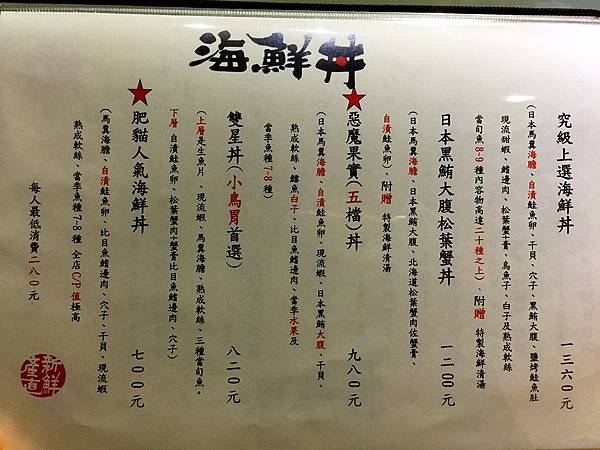 海鮮丼
究級上選海鮮丼 一三六０元
(日本馬糞海膽、自漬鮭魚卵、干貝、穴子、黑鮪大腹、鹽烤鮭魚肚
現流甜蝦、鰭邊肉、松葉蟹+膏、烏魚子、白子及熟成軟絲
當旬魚8~9種內容物高達二十種之上)、附贈 特製海鮮清湯
日本黑鮪大腹松葉蟹丼 一二００元
(日本馬糞海膽、日本黑鮪大腹、北海道松葉蟹肉佐蟹膏、
自漬鮭魚卵)、附贈 特製海鮮清湯
惡魔果實(五檔)丼 九八０元
(日本馬糞海膽、自漬鮭魚卵、現流蝦、日本黑鮪大腹、干貝、
熟成軟絲、鱈魚白子、比目魚鰭邊肉、當季水果及
當季魚種7~8種)
雙星丼(小鳥胃首選) 八二０元
(上層是生魚片、現流蝦、馬糞海膽、熟成軟絲、三種當旬魚。
下層 自漬鮭魚卵、松葉蟹肉+蟹膏比目魚鰭邊肉、穴子)
肥貓人氣海鮮丼 七００元
(馬糞海膽、自漬鮭魚卵、比目魚鰭邊肉、穴子、干貝、現流蝦
熟成軟絲、當季魚種7~8種 全店C/P值極高
每人最低消費二八０元
新鮮直產